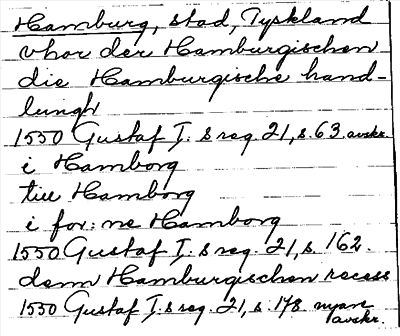 Hamburg, stad, Tyskland
vhor der Hamburgischen
die Hamburgische hand-
lungh
1550 Gustaf I:s reg. 21, s. 63. avskr.
i Hamborg
till Hamborg
i for:ne Hamborg
1550 Gustaf I:s reg. 21, s. 162.
dem Hamburgischen recess
1550 Gustaf I:s reg. 21, s. 178 nyare
avskr.